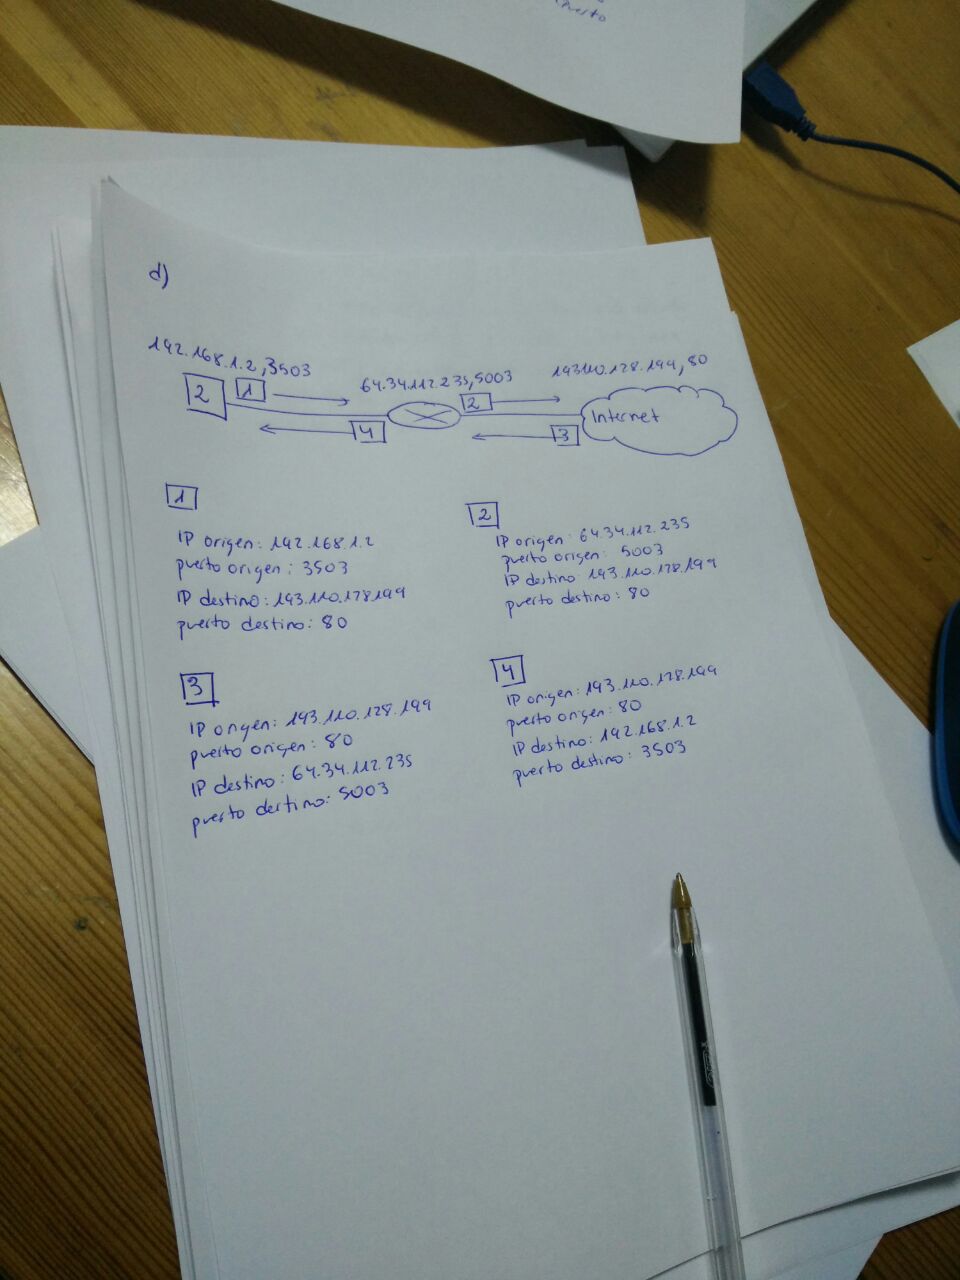 puerto
d)
192.168.1.2,3503
64.34.112.235,5003
193.110.128.199,80
2
1
2
Internet
4
3
1
IP origen: 192.168.1.2
puerto origen: 3503
IP destino: 193.110.128.199
puerto destino: 80
2
IP origen: 64.34.112.235
puerto origen: 5003
IP destino: 193.110.128.199
puerto destino: 80
3
IP origen: 193.110.128.199
puerto origen: 80
IP destino: 64.34.112.235
puerto destino: 5003
4
IP origen: 193.110.128.199
puerto origen: 80
IP destino: 192.168.1.2
puerto destino: 3503